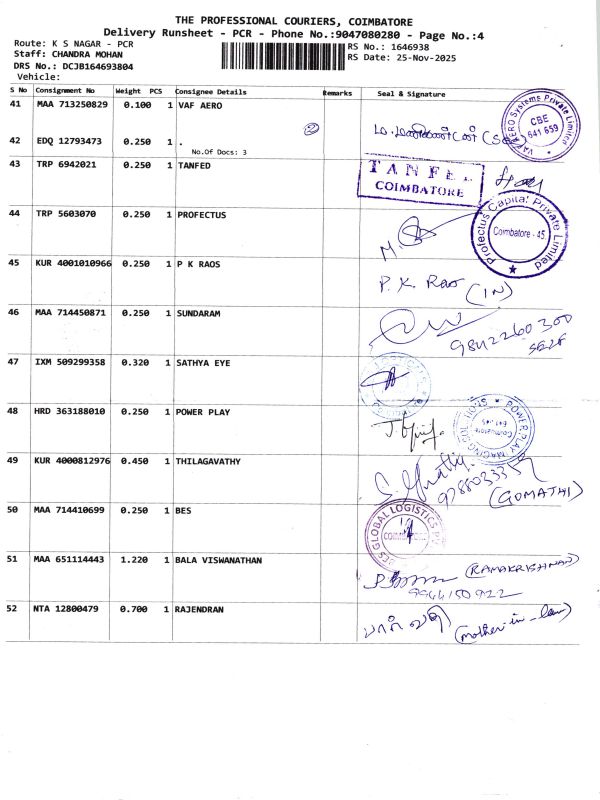 THE PROFESSIONAL COURIERS, COIMBATORE
Delivery Runsheet - PCR - Phone No.:9047080280 - Page No.:4
Route: K S NAGAR - PCR
RS No.: 1646938
Staff: CHANDRA MOHAN
RS Date: 25-Nov-2025
DRS No.: DCJB164693804
Vehicle:
S No Consignment No Weight PCS Consignee Details Remarks Seal & Signature
41 MAA 713250829 0.100 1 VAF AERO
VAF AERO Systems Private Limited
CBE
641 659
42 EDQ 12793473 0.250 1 .
No.Of Docs: 3
43 TRP 6942021 0.250 1 TANFED
COIMBATORE
44 TRP 5603070 0.250 1 PROFECTUS
Profectus Capital Private Limited
Coimbatore - 45
45 KUR 4001010966 0.250 1 P K RAOS
P. K. Rao (IN)
46 MAA 714450871 0.250 1 SUNDARAM
9842260300
47 IXM 509299358 0.320 1 SATHYA EYE
48 HRD 363188010 0.250 1 POWER PLAY
49 KUR 4000812976 0.450 1 THILAGAVATHY
(GOMATHI)
50 MAA 714410699 0.250 1 BES
GLOBAL LOGISTICS
51 MAA 651114443 1.220 1 BALA VISWANATHAN
(RAMAKRISHNAN)
9944150922
52 NTA 12800479 0.700 1 RAJENDRAN
(mother-in-law)